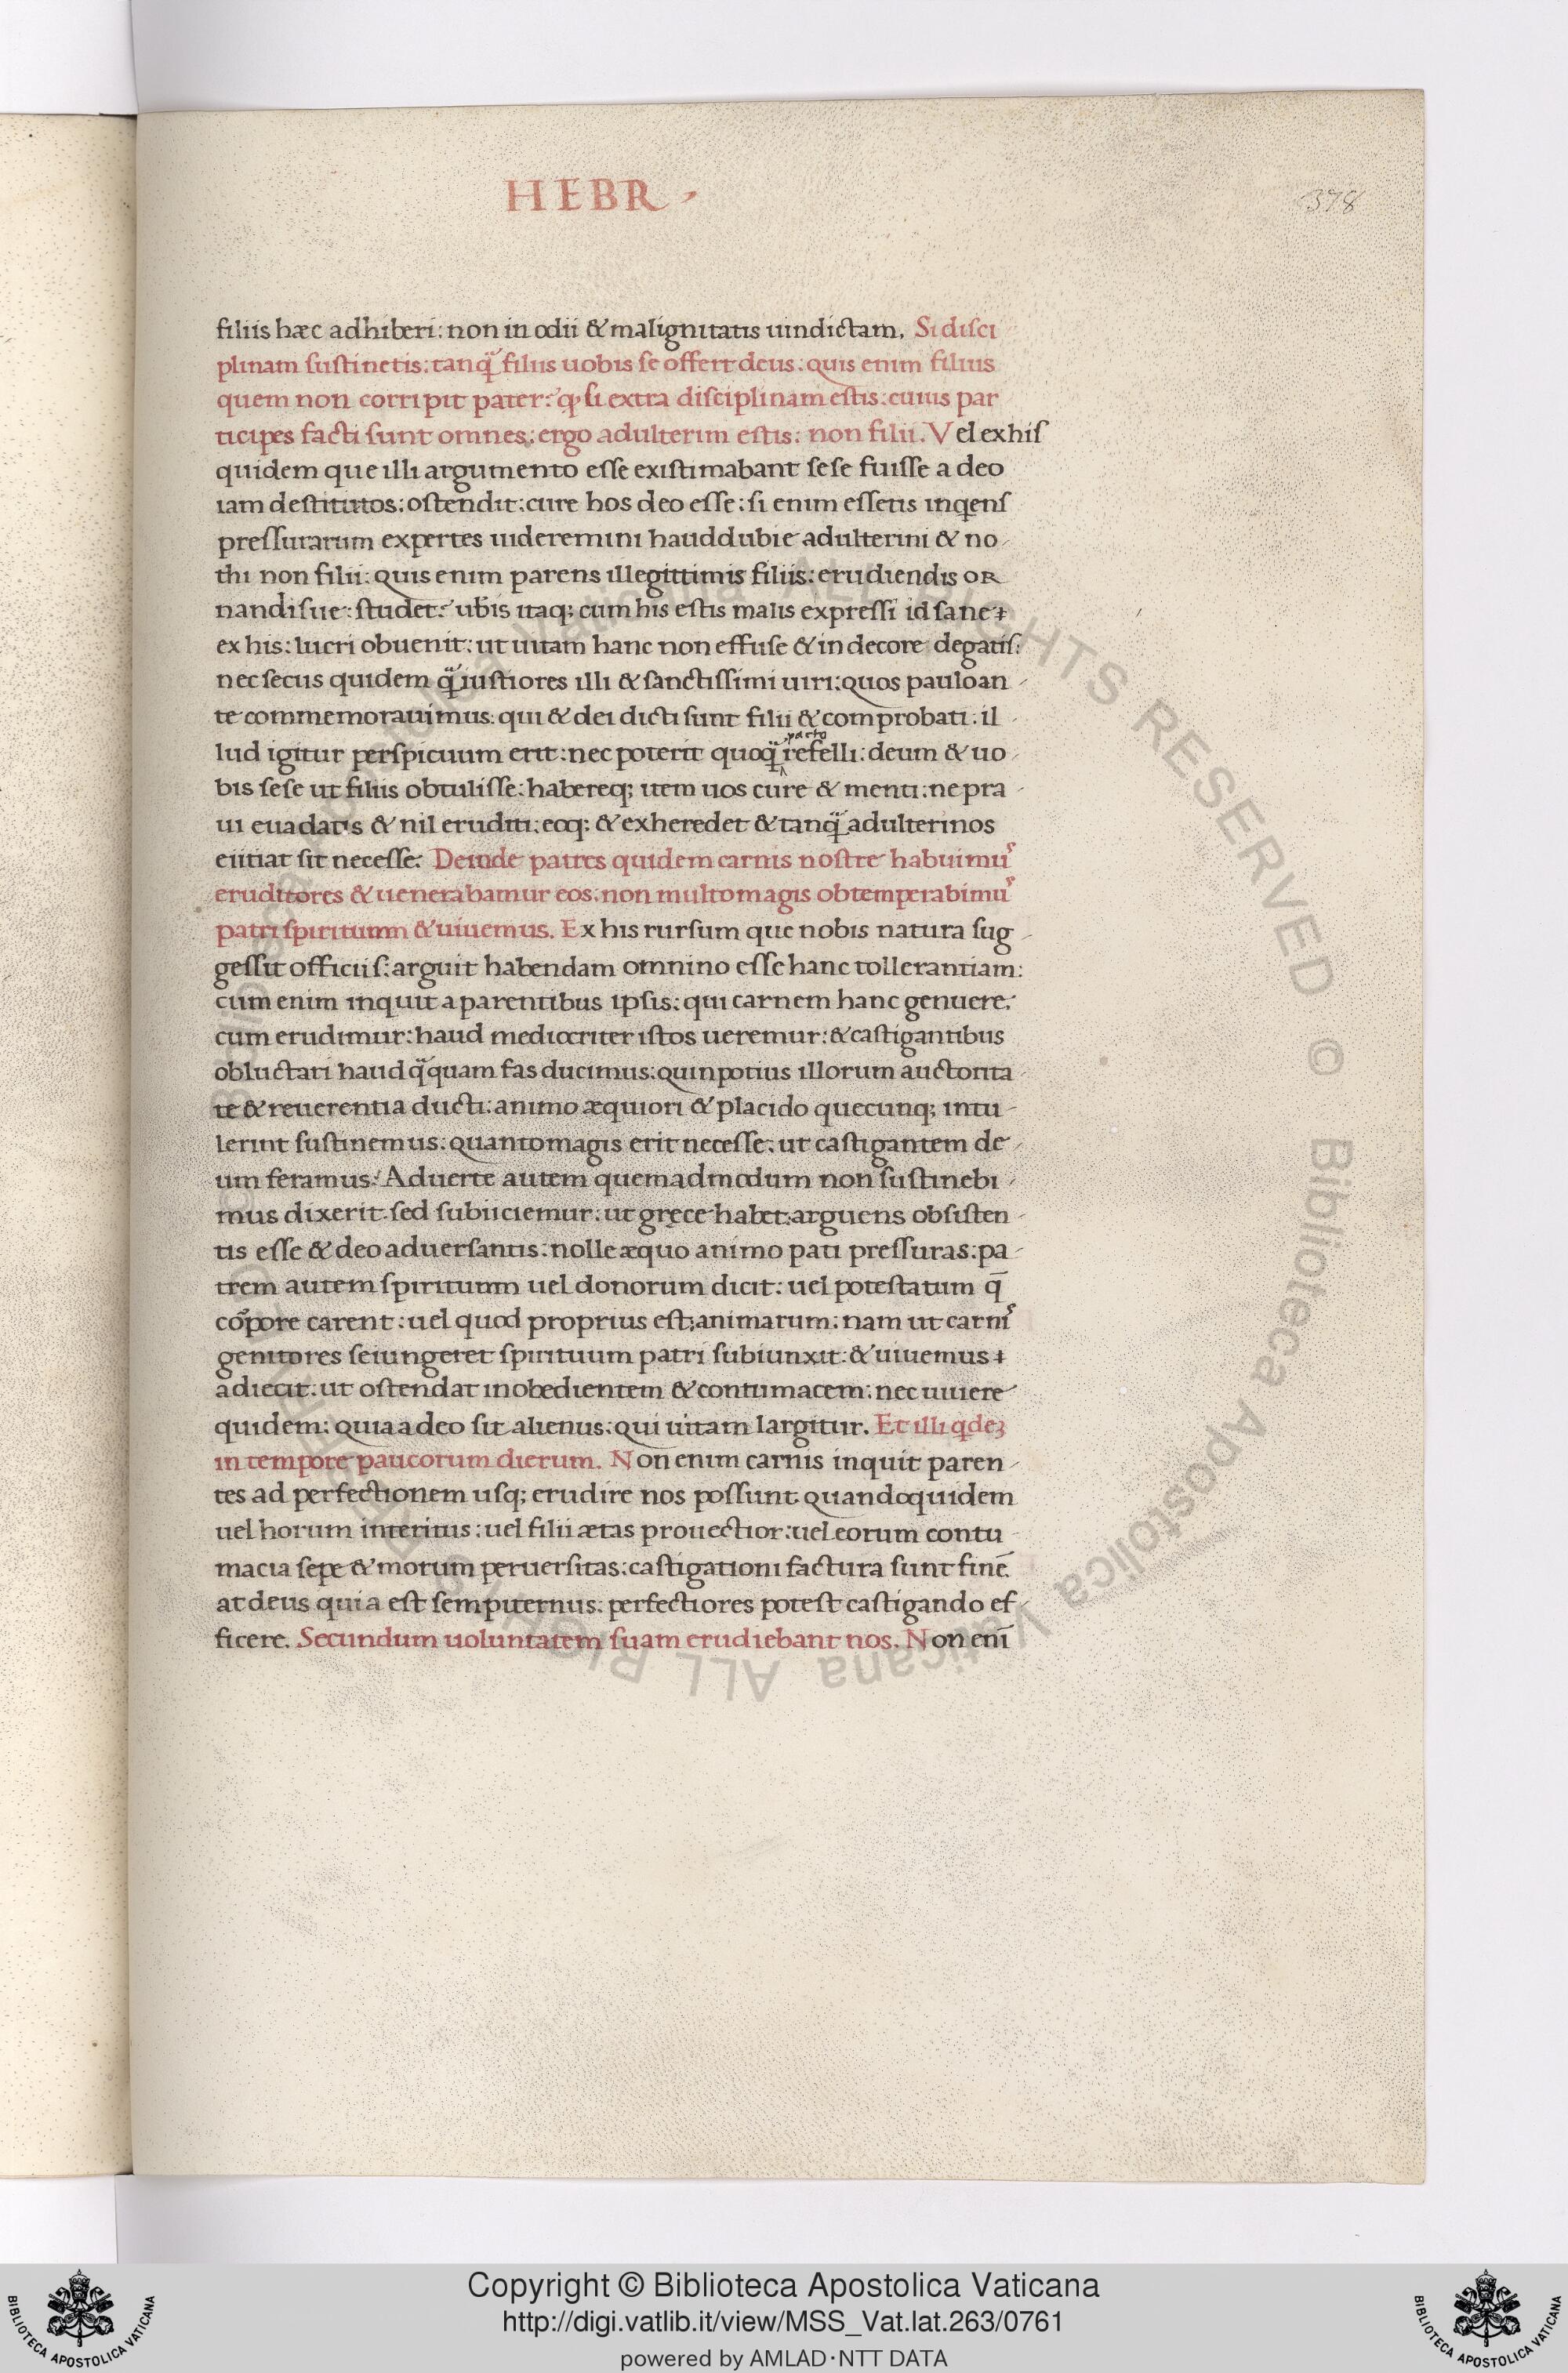 HEBR
378
filiis hæc adhiberi: non in odii & malignitatis uindictam. Si disci
plinam sustinetis: tanq̃ filiis uobis se offert deus: quis enim filius
quem non corripit pater: ꝙ si extra disciplinam estis: cuius par
ticipes facti sunt omnes: ergo adulterini estis: non filii. Vel ex his
quidem que illi argumento esse existimabant sese fuisse a deo
iam destitutos: ostendit: cure hos deo esse: si enim essetis inqens
pressurarum expertes uideremini haud dubie adulterini & no-
thi non filii: quis enim parens illegittimis filiis: erudiendis OR
nandisue: studet: ubis itaq; cum his estis malis expressi id sane
ex his: lucri obuenit: ut uitam hanc non effuse & in decore degatis:
nec secus quidem q̃ iustiores illi & sanctissimi uiri: quos pauloan-
te commemorauimus: qui & dei dicti sunt filii & comprobati: il-
pacto
lud igitur perspicuum erit: nec poterit quoq̃ refelli: deum & uo-
bis sese ut filiis obtulisse: habereq; item uos cure & menti: ne pra-
ui euadatis & nil eruditi: eoq; & exheredet & tanq̃ adulterinos
eiitiat sit necesse. Deinde patres quidem carnis nostre habuimus
eruditores & uenerabamur eos: non multo magis obtemperabimus
patri spirituum & uiuemus. Ex his rursum que nobis natura sug-
gessit officiis: arguit habendam omnino esse hanc tollerantiam:
cum enim inquit a parentibus ipsis: qui carnem hanc genuere:
cum erudimur: haud mediocriter istos ueremur: & castigantibus
obluctari haud q̃quam fas ducimus: quin potius illorum auctorita-
te & reuerentia ducti: animo æquiori & placido quecunq; intu-
lerint sustinemus: quanto magis erit necesse: ut castigantem de-
um feramus: Aduerte autem quemadmodum non sustinebi-
mus dixerit sed subiiciemur: ut gręce habet: arguens obsisten-
tis esse & deo aduersantis: nolle æquo animo pati pressuras: pa-
trem autem spirituum uel donorum dicit: uel potestatum q̄
cōpore carent: uel quod proprius est: animarum: nam ut carnis
genitores seiungeret spirituum patri subiunxit: & uiuemus
adiecit: ut ostendat inobedientem & contumacem: nec uiuere
quidem: quia a deo sit alienus: qui uitam largitur. Et illi qdeꝫ
in tempore paucorum dierum. Non enim carnis inquit paren-
tes ad perfectionem usq; erudire nos possunt quandoquidem
uel horum interitus: uel filii ætas prouectior: uel eorum contu-
macia sepe & morum peruersitas: castigationi factura sunt finē.
at deus quia est sempiternus: perfectiores potest castigando ef-
ficere. Secundum uoluntatem suam erudiebant nos. Non enī
Copyright © Biblioteca Apostolica Vaticana
http://digi.vatlib.it/view/MSS_Vat.lat.263/0761
powered by AMLAD·NTT DATA